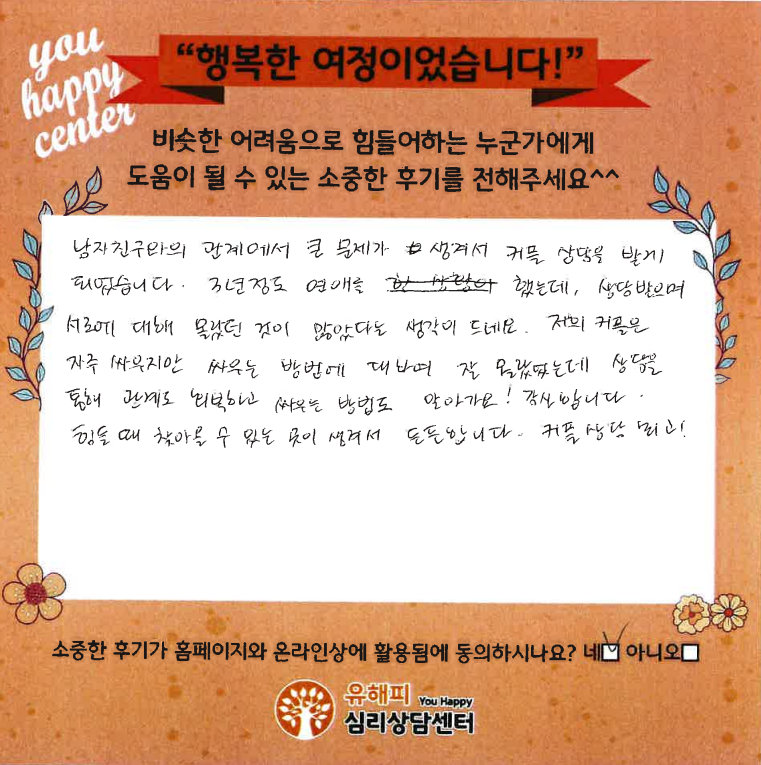 you
happy
center
“행복한 여정이었습니다!”
비슷한 어려움으로 힘들어하는 누군가에게
도움이 될 수 있는 소중한 후기를 전해주세요^^
남자친구와의 관계에서 큰 문제가 생겨서 커플 상담을 받게
되었습니다. 3년정도 연애를 했는데, 상담받으며
서로에 대해 몰랐던 것이 많았다는 생각이 드네요. 저희 커플은
자주 싸우지만 싸우는 방법에 대하여 잘 몰랐었는데 상담을
통해 관계도 회복하고 싸우는 방법도 알아가요! 감사합니다.
힘들 때 찾아올 수 있는 곳이 생겨서 든든합니다. 커플상담 최고!
소중한 후기가 홈페이지와 온라인상에 활용됨에 동의하시나요? 네 아니오
유해피 You Happy
심리상담센터